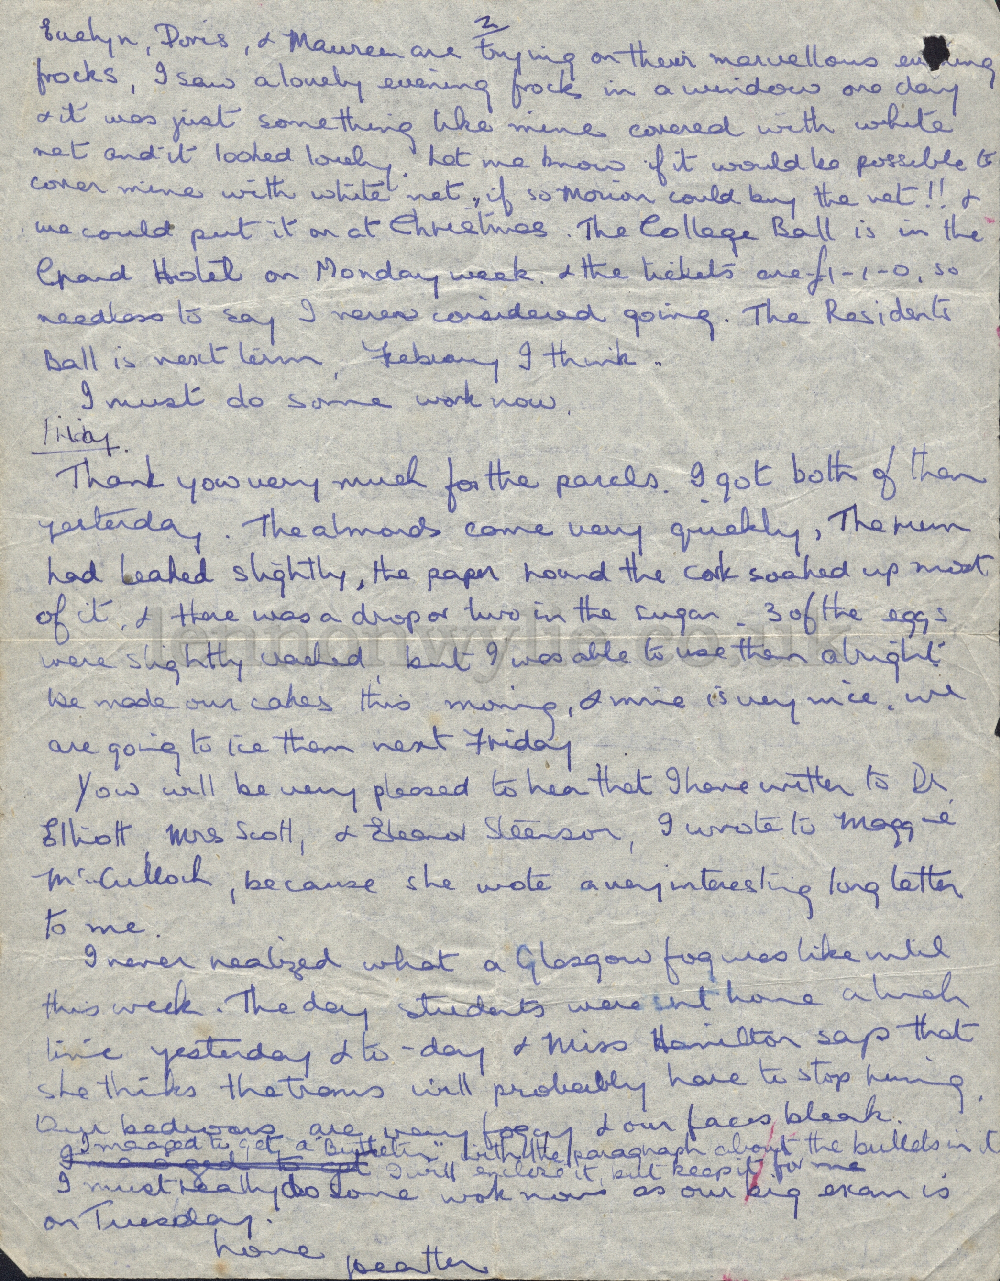 2
Evelyn, Doris, & Maureen are trying on their marvellous evening
frocks, I saw a lovely evening frock in a window one day
& it was just something like mine covered with white
net and it looked lovely. Let me know if it would be possible to
cover mine with white net, if so could buy the net!! &
we could put it on at Christmas. The College Ball is in the
Grand Hotel on Monday week. & the tickets are £1-1-0, so
needless to say I never considered going. The Residents
Ball is next term, February I think.
I must do some work now.
Friday.
Thank you very much for the parcels. I got both of them
yesterday. The almonds came very quickly, The rum
had leaked slightly, the paper round the cork soaked up most
of it, & there was a drop or two in the sugar. 3 of the eggs
were slightly cracked, but I was able to use them alright.
We made our cakes this morning, & mine is very nice. We
are going to ice them next Friday
You will be very pleased to hear that I have written to Dr.
Elliott, Mrs Scott, & Eleanor Steenson, I wrote to Maggie
McCulloch, because she wrote a very interesting long letter
to me.
I never realized what a Glasgow fog was like until
this week. The day students were sent home at lunch
time yesterday & to-day & Miss Hamilton says that
she thinks the trams will probably have to stop running.
Our bedrooms are very foggy & our faces black.
I managed to get a "Bulletin" with the paragraph about the bullets in it
I managed to get I will enclose it, but keep it for me
I must really do some work now as our big exam is
on Tuesday.
Love
Heather
lennonwylie.co.uk